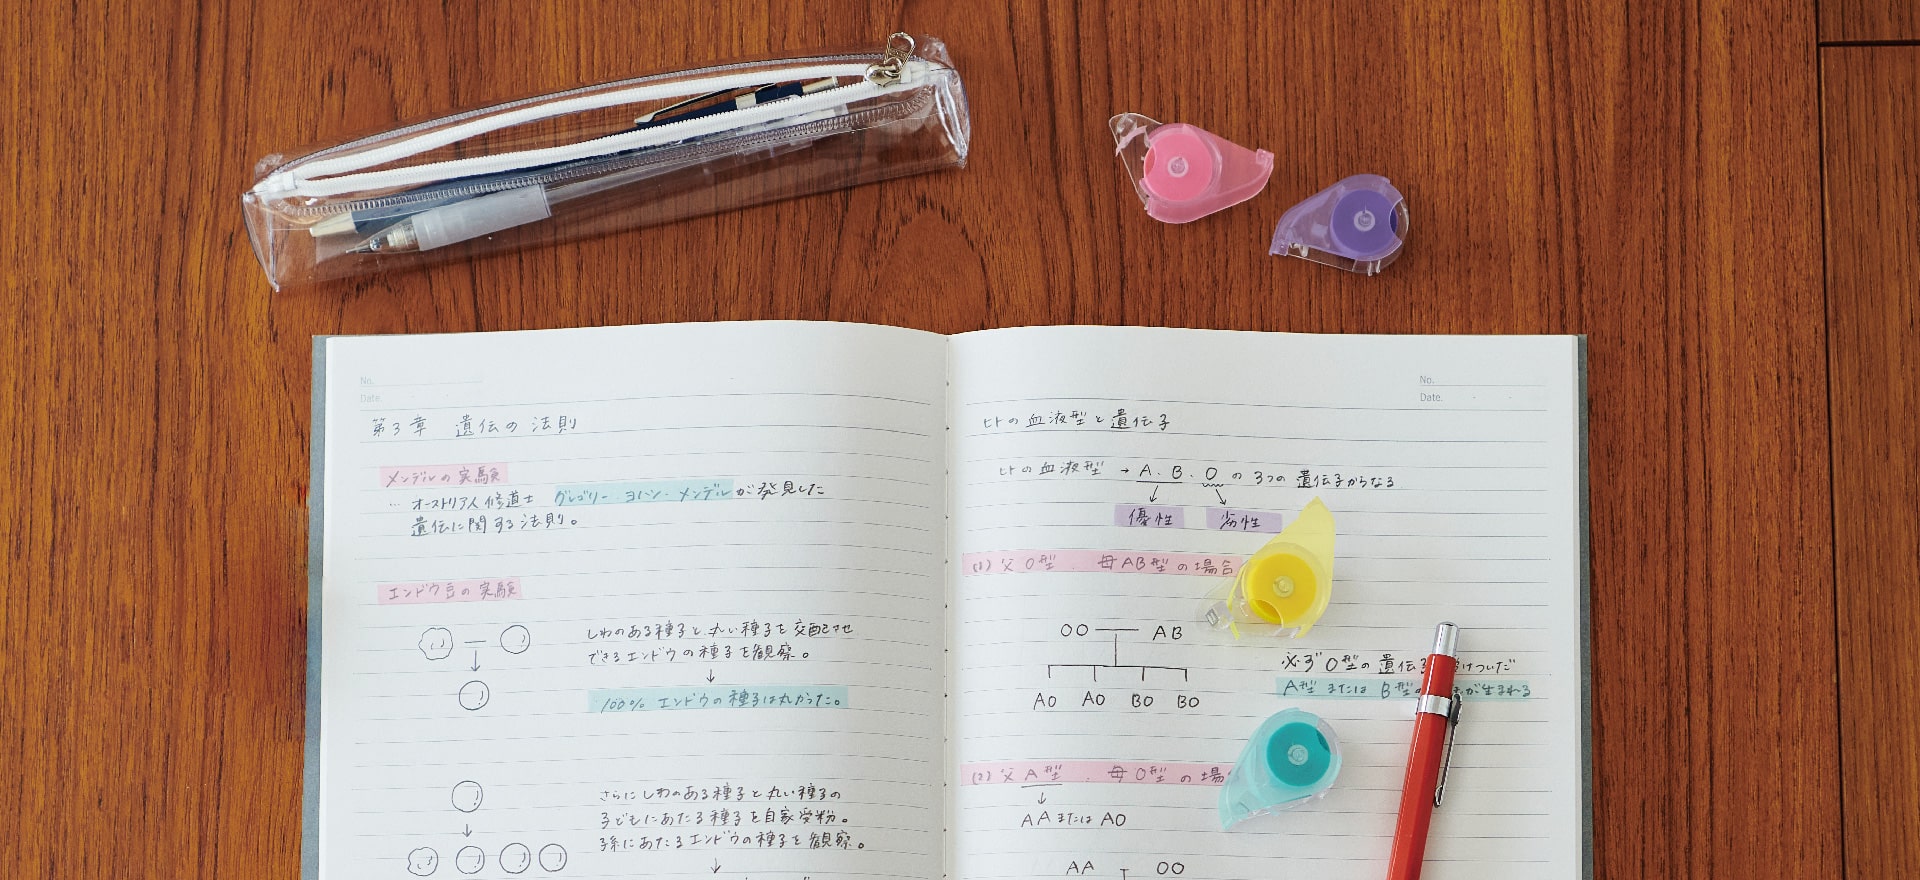 No.
Date.
第3章 遺伝の法則
メンデルの実験
… オーストリア人修道士 グレゴリー・ヨハン・メンデルが発見した
遺伝に関する法則。
エンドウ豆の実験
しわのある種子と丸い種子を交配させ
できるエンドウの種子を観察。
↓
100% エンドウの種子は丸かった。
さらにしわのある種子と丸い種子の
子どもにあたる種子を自家受粉。
孫にあたるエンドウの種子を観察。
↓
No.
Date.
ヒトの血液型と遺伝子
ヒトの血液型 → A・B・Oの3つの遺伝子からなる
優性 劣性
(1) 父O型 ・ 母AB型の場合
OO AB
AO AO BO BO
必ずO型の遺伝子 けついだ
A型またはB型の が生まれる
(2) 父A型 ・ 母O型の場
↓
AAまたはAO
AA OO